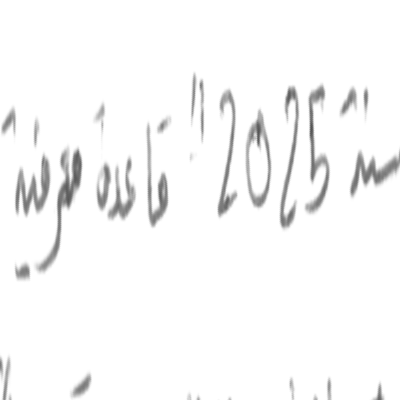 سنة 2025 !! قاعدة معرفية